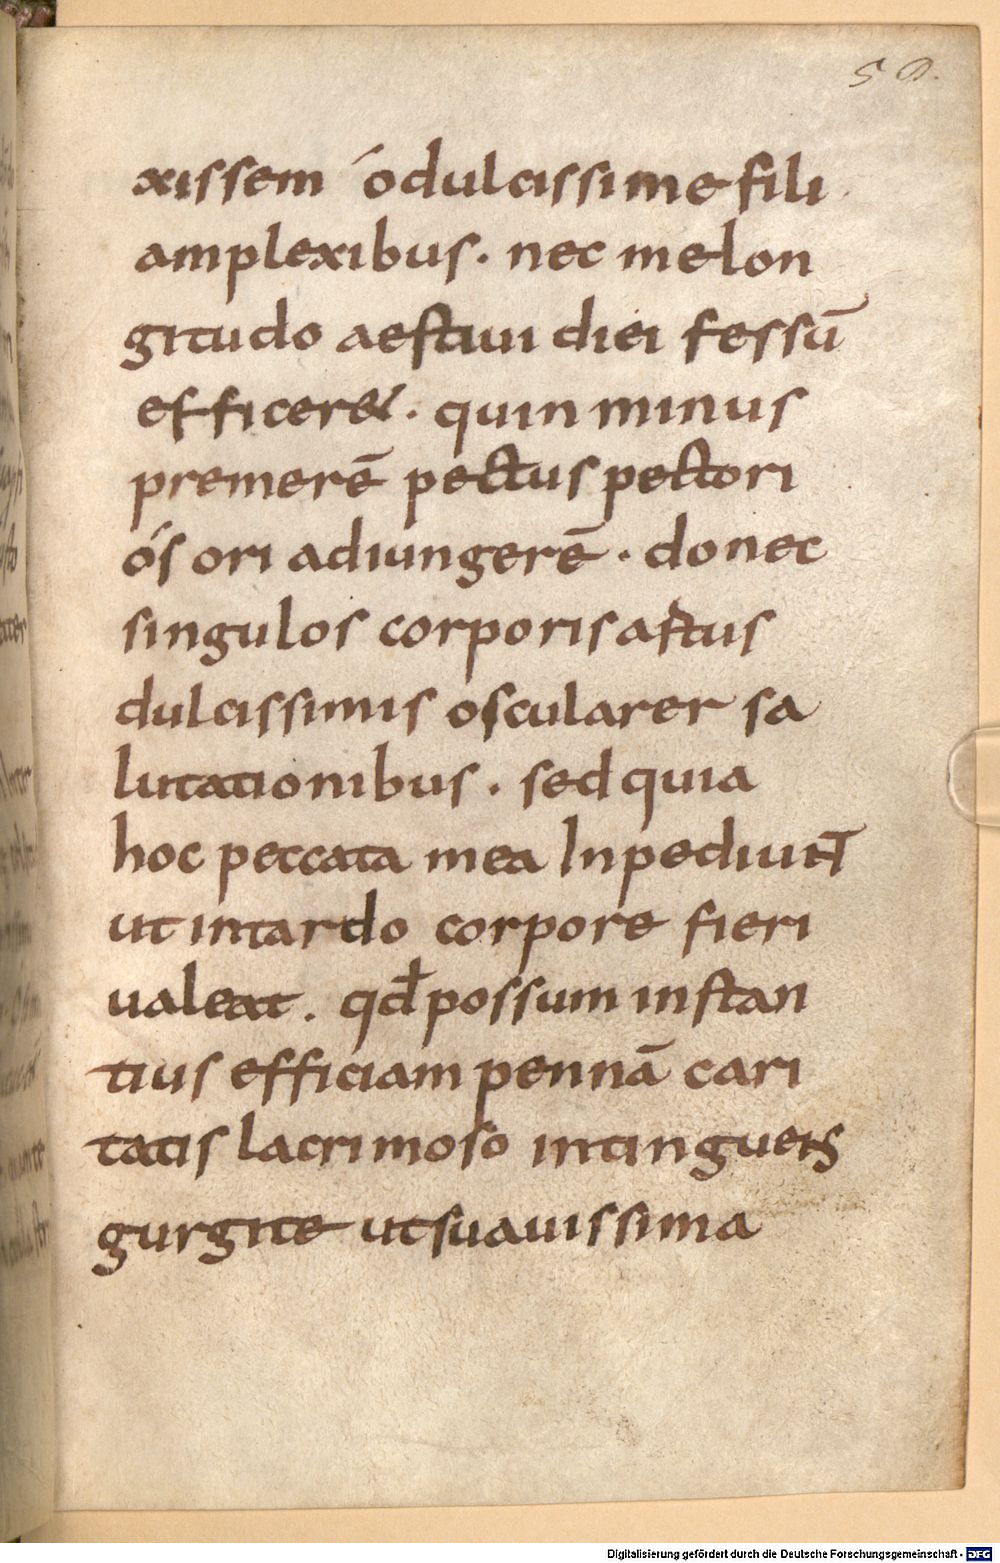 52.
xissem ó dulcissime fili
amplexibus. nec me lon
gitudo aestiui diei fessū
efficeret. quin minus
premerē pectus pectori
ós ori adiungerē. donec
singulos corporis artus
dulcissimis oscularer sa
lutationibus. sed quia
hoc peccata mea Inpediunt
ut in tardo corpore fieri
ualeat. qđ possum instan
tius efficiam pennā cari
tatis lacrimoso intinguens
gurgite ut suauissima
Digitalisierung gefördert durch die Deutsche Forschungsgemeinschaft - DFG